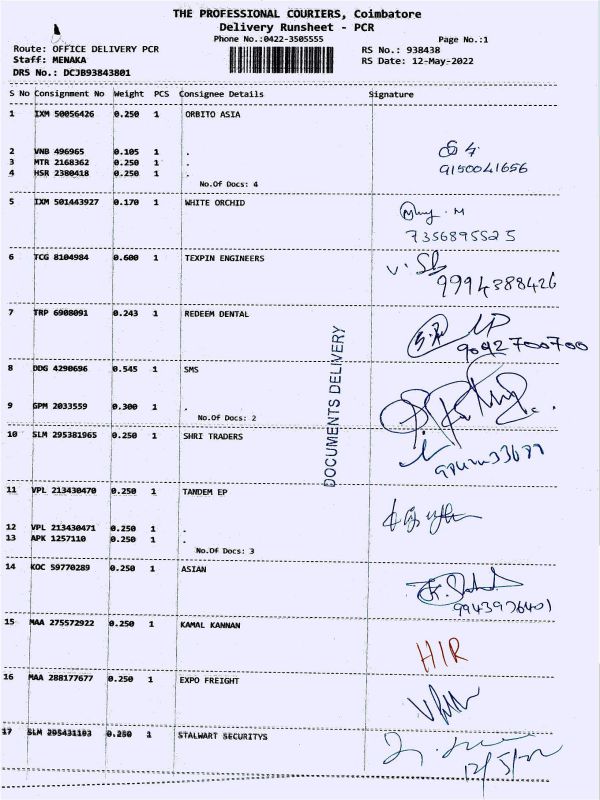 THE PROFESSIONAL COURIERS, Coimbatore
Delivery Runsheet - PCR
Phone No.:0422-3505555 Page No.:1
Route: OFFICE DELIVERY PCR RS No.: 938438
Staff: MENAKA RS Date: 12-May-2022
DRS No.: DCJB93843801
S No Consignment No Weight PCS Consignee Details Signature
1 IXM 50056426 0.250 1 ORBITO ASIA
2 VNB 496965 0.105 1 .
3 MTR 2168362 0.250 1 .
4 HSR 2380418 0.250 1 .
9150041656
No.Of Docs: 4
5 IXM 501443927 0.170 1 WHITE ORCHID
7356895525
6 TCG 8104984 0.600 1 TEXPIN ENGINEERS
9994388426
7 TRP 6908091 0.243 1 REDEEM DENTAL
9042700700
DOCUMENTS DELIVERY
8 DDG 4290696 0.545 1 SMS
9 GPM 2033559 0.300 1 .
No.Of Docs: 2
10 SLM 295381965 0.250 1 SHRI TRADERS
11 VPL 213430470 0.250 1 TANDEM EP
12 VPL 213430471 0.250 1 .
13 APK 1257110 0.250 1 .
No.Of Docs: 3
14 KOC 59770289 0.250 1 ASIAN
9943976401
15 MAA 275572922 0.250 1 KAMAL KANNAN
HIR
16 MAA 288177677 0.250 1 EXPO FREIGHT
17 SLM 295431103 0.250 1 STALWART SECURITYS
12/5/22